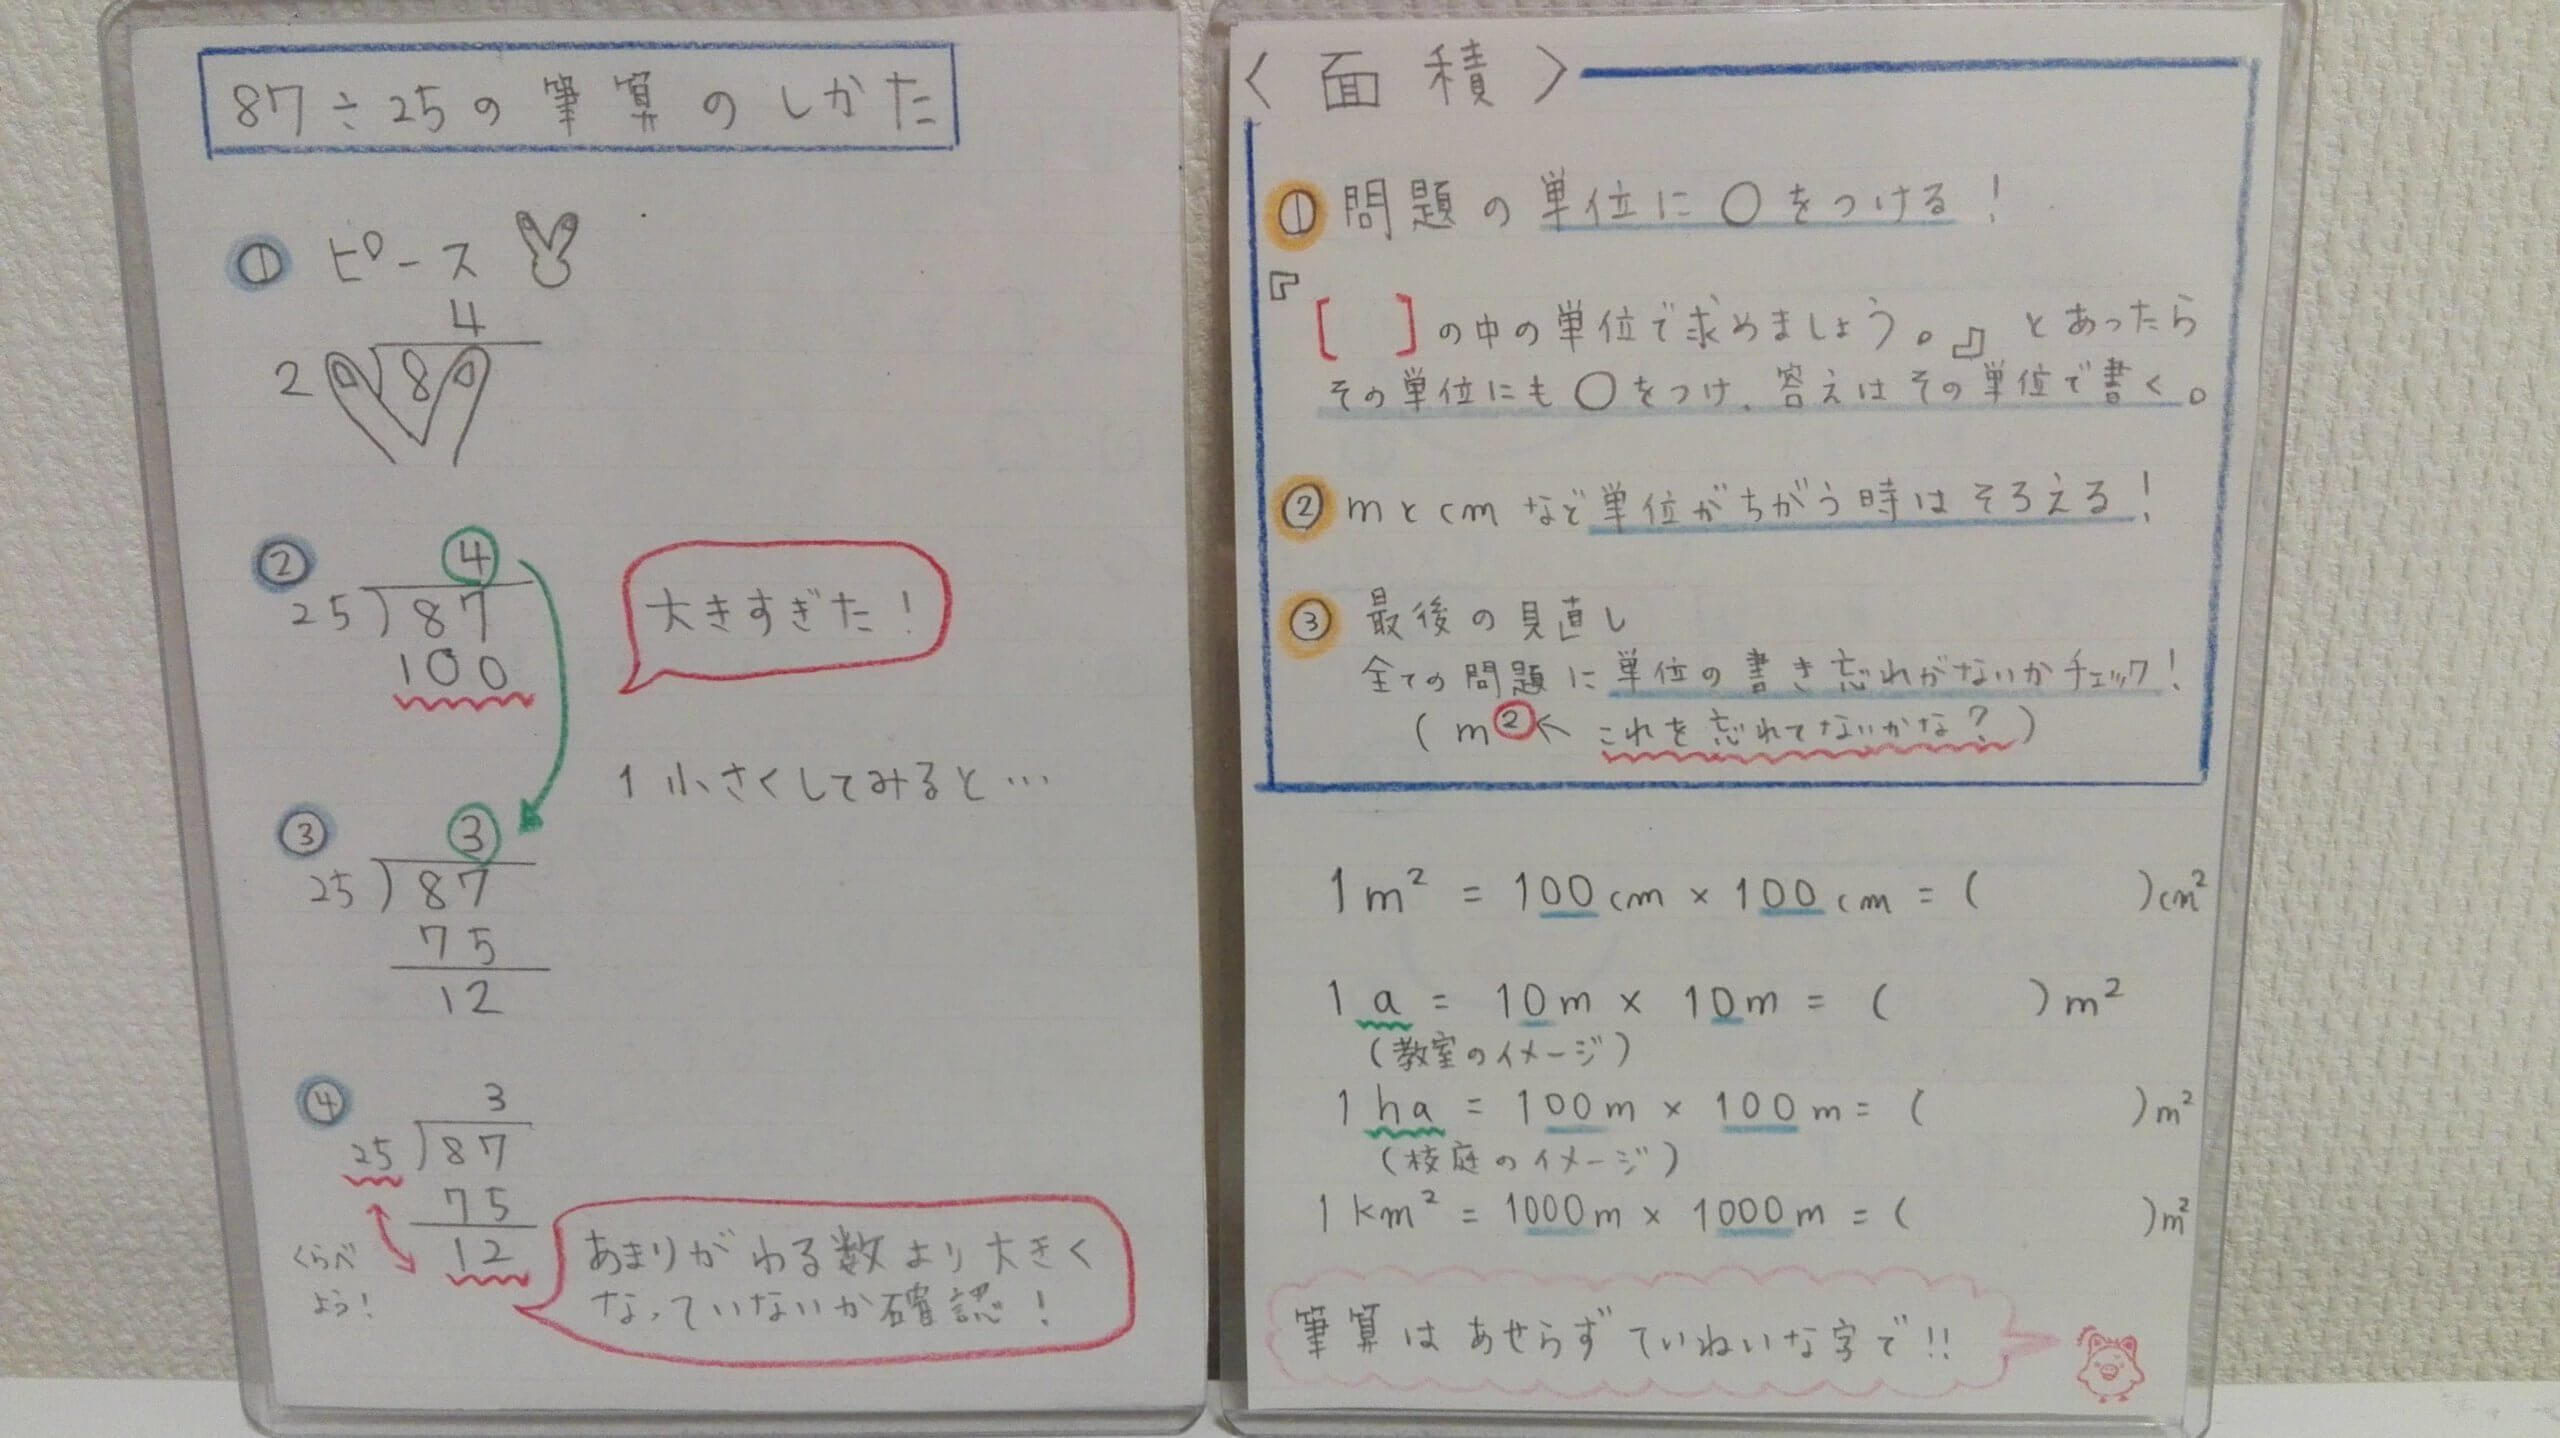 87÷25の筆算のしかた
① ピース
4
2 8
②
4
25)87
100
大きすぎた!
1 小さくしてみると…
③
3
25)87
75
12
④
3
25)87
75
12
くらべ
よう!
あまりがわる数より大きく
なっていないか確認!
〈面積〉
① 問題の単位に○をつける!
『[ ]の中の単位で求めましょう。』とあったら
その単位にも○をつけ、答えはその単位で書く。
② mとcmなど単位がちがう時はそろえる!
③ 最後の見直し
全ての問題に単位の書き忘れがないかチェック!
(m²← これを忘れてないかな?)
1m² = 100cm × 100cm = ( )cm²
1a = 10m × 10m = ( )m²
(教室のイメージ)
1ha = 100m × 100m = ( )m²
(校庭のイメージ)
1km² = 1000m × 1000m = ( )m²
筆算はあせらずていねいな字で!!